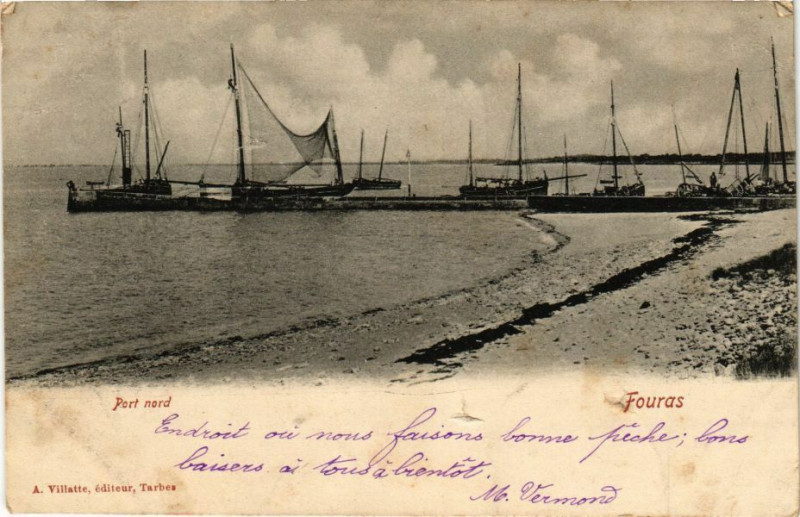 Port nord
Fouras
Endroit où nous faisons bonne pêche; bons
baisers à tous à bientôt.
M. Vermond
A. Villatte, éditeur, Tarbes